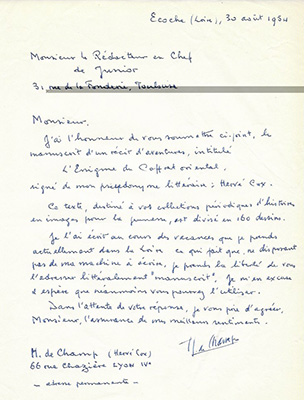 Ecoche (Loire), 30 août 1954
Monsieur le Rédacteur en Chef
de Junior
31, rue de la Fonderie, Toulouse
Monsieur,
J'ai l'honneur de vous soumettre ci-joint, le
manuscrit d'un récit d'aventures, intitulé
L'Enigme du Coffret oriental,
signé de mon pseudonyme littéraire : Hervé Cox.
Ce texte, destiné à vos collections périodiques d'histoires
en images pour la jeunesse, est divisé en 160 dessins.
Je l'ai écrit au cours des vacances que je prends
actuellement dans la Loire ce qui fait que, ne disposant
pas de ma machine à écrire, je prends la liberté de vous
l'adresser littéralement "manuscrit". Je m'en excuse
et espère que néanmoins vous pourrez l'utiliser.
Dans l'attente de votre réponse, je vous prie d'agréer,
Monsieur, l'assurance de mes meilleurs sentiments.
M. de Champ (Hervé Cox)
66 rue Chazière LYON IVe
- adresse permanente -